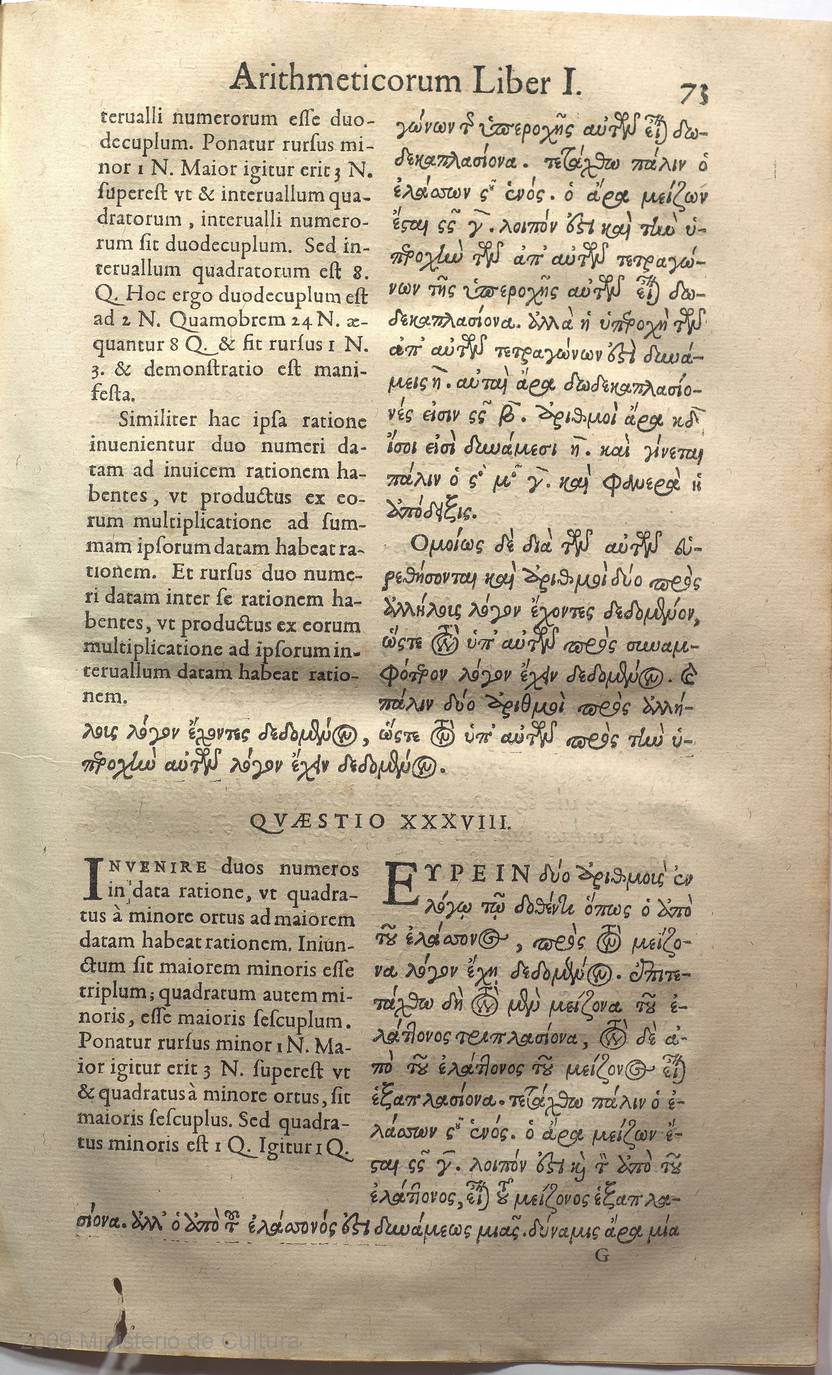 Arithmeticorum Liber I.
73
terualli numerorum eſſe duo-
decuplum. Ponatur rurſus mi-
nor 1 N. Maior igitur erit 3 N.
ſupereſt vt & interuallum qua-
dratorum, interualli numero-
rum ſit duodecuplum. Sed in-
teruallum quadratorum eſt 8.
Q. Hoc ergo duodecuplum eſt
ad 2 N. Quamobrem 24 N. æ-
quantur 8 Q. & fit rurſus 1 N.
3. & demonſtratio eſt mani-
feſta.
Similiter hac ipſa ratione
inuenientur duo numeri da-
tam ad inuicem rationem ha-
bentes, vt productus ex eo-
rum multiplicatione ad ſum-
mam ipſorum datam habeat ra-
tionem. Et rurſus duo nume-
ri datam inter ſe rationem ha-
bentes, vt productus ex eorum
multiplicatione ad ipſorum in-
teruallum datam habeat ratio-
nem.
γώνων τῆς ὑπεροχῆς αὐτῶν εἶναι δω-
δεκαπλασίονα. τετάχθω πάλιν ὁ
ἐλάσσων ςοῦ ἑνός. ὁ ἄρα μείζων
ἔσται ςς γ. λοιπόν ἐστι καὶ τὴν ὑ-
περοχὴν τῶν ἀπ' αὐτῶν τετραγώ-
νων τῆς ὑπεροχῆς αὐτῶν εἶναι δω-
δεκαπλασίονα. ἀλλὰ ἡ ὑπεροχὴ τῶν
ἀπ' αὐτῶν τετραγώνων ἐστὶ δυνά-
μεις η. αὐταὶ ἄρα δωδεκαπλασίο-
νές εἰσιν ςς β. ἀριθμοὶ ἄρα κδ
ἴσοι εἰσὶ δυνάμεσι η. καὶ γίνεται
πάλιν ὁ ςὸς μο γ. καὶ φανερὰ ἡ
ἀπόδειξις.
Ομοίως δὲ διὰ τῶν αὐτῶν εὑ-
ρεθήσονται καὶ ἀριθμοὶ δύο πρὸς
ἀλλήλοις λόγον ἔχοντες δεδομένον,
ὥστε τὸν ὑπ' αὐτῶν πρὸς συναμ-
φότερον λόγον ἔχειν δεδομένον. καὶ
πάλιν δύο ἀριθμοὶ πρὸς ἀλλή-
λοις λόγον ἔχοντες δεδομένον, ὥστε τὸν ὑπ' αὐτῶν πρὸς τὴν ὑ-
περοχὴν αὐτῶν λόγον ἔχειν δεδομένον.
QVÆSTIO XXXVIII.
INVENIRE duos numeros
in data ratione, vt quadra-
tus à minore ortus ad maiorem
datam habeat rationem. Iniun-
ctum ſit maiorem minoris eſſe
triplum; quadratum autem mi-
noris, eſſe maioris ſeſcuplum.
Ponatur rurſus minor 1 N. Ma-
ior igitur erit 3 N. ſupereſt vt
& quadratus à minore ortus, ſit
maioris ſeſcuplus. Sed quadra-
tus minoris eſt 1 Q. Igitur 1 Q.
ΕΥΡΕΙΝ δύο ἀριθμοὺς ἐν
λόγῳ τῷ δοθέντι ὅπως ὁ ἀπὸ
τοῦ ἐλάσσονος, πρὸς τὸν μείζο-
να λόγον ἔχῃ δεδομένον. ἐπιτε-
τάχθω δὴ τὸν μὲν μείζονα τοῦ ἐ-
λάττονος τριπλασίονα, τὸν δὲ ἀ-
πὸ τοῦ ἐλάττονος τοῦ μείζονος εἶναι
ἑξαπλασίονα. τετάχθω πάλιν ὁ ἐ-
λάσσων ςοῦ ἑνός. ὁ ἄρα μείζων ἔ-
σται ςς γ. λοιπόν ἐστι καὶ τὸν ἀπὸ τοῦ
ἐλάττονος, εἶναι τοῦ μείζονος ἑξαπλα-
σίονα. ἀλλ' ὁ ἀπὸ τοῦ ἐλάσσονός ἐστι δυνάμεως μιᾶς. δύναμις ἄρα μία
G
2009 Ministerio de Cultura